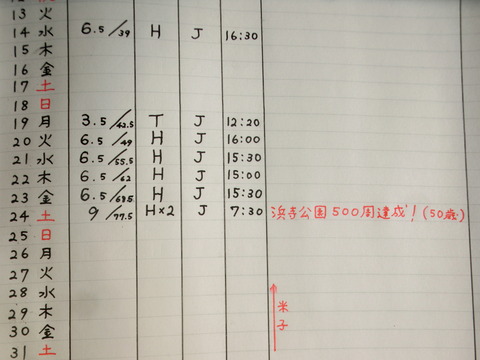 13 火
14 水 6.5/39 H J 16:30
15 木
16 金
17 土
18 日
19 月 3.5/42.5 T J 12:20
20 火 6.5/49 H J 16:00
21 水 6.5/55.5 H J 15:30
22 木 6.5/62 H J 15:00
23 金 6.5/68.5 H J 15:30
24 土 9/77.5 H×2 J 7:30 浜寺公園500周達成!(50歳)
25 日
26 月
27 火
28 水
29 木
30 金
31 土
米子